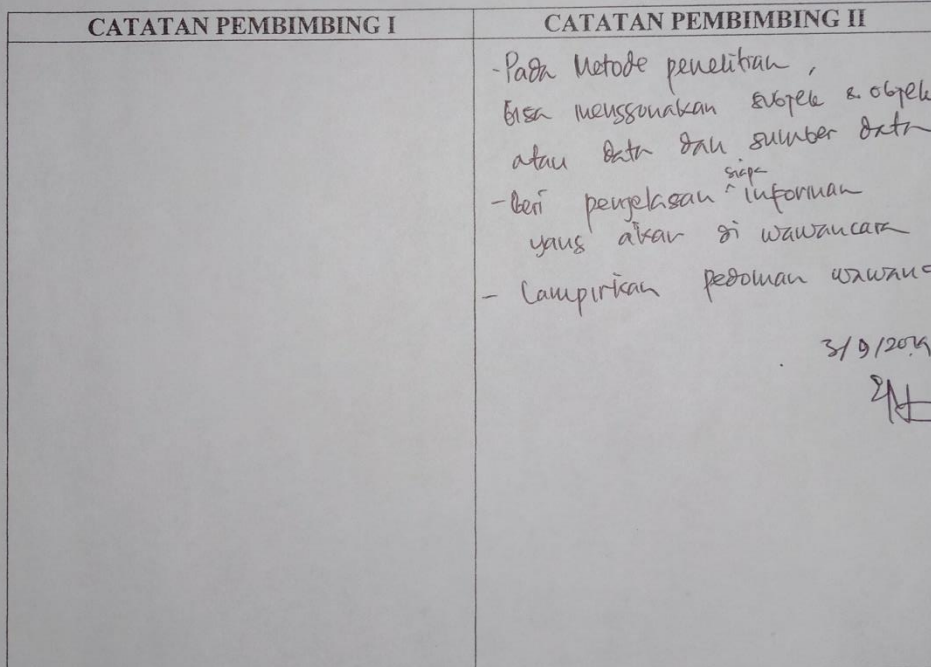 CATATAN PEMBIMBING I
CATATAN PEMBIMBING II
- Pada Metode penelitian,
bisa menggunakan subjek & objek
atau data dan sumber data
- beri penjelasan siapa informan
yang akan di wawancara
- Lampirkan pedoman wawanc
3/9/20